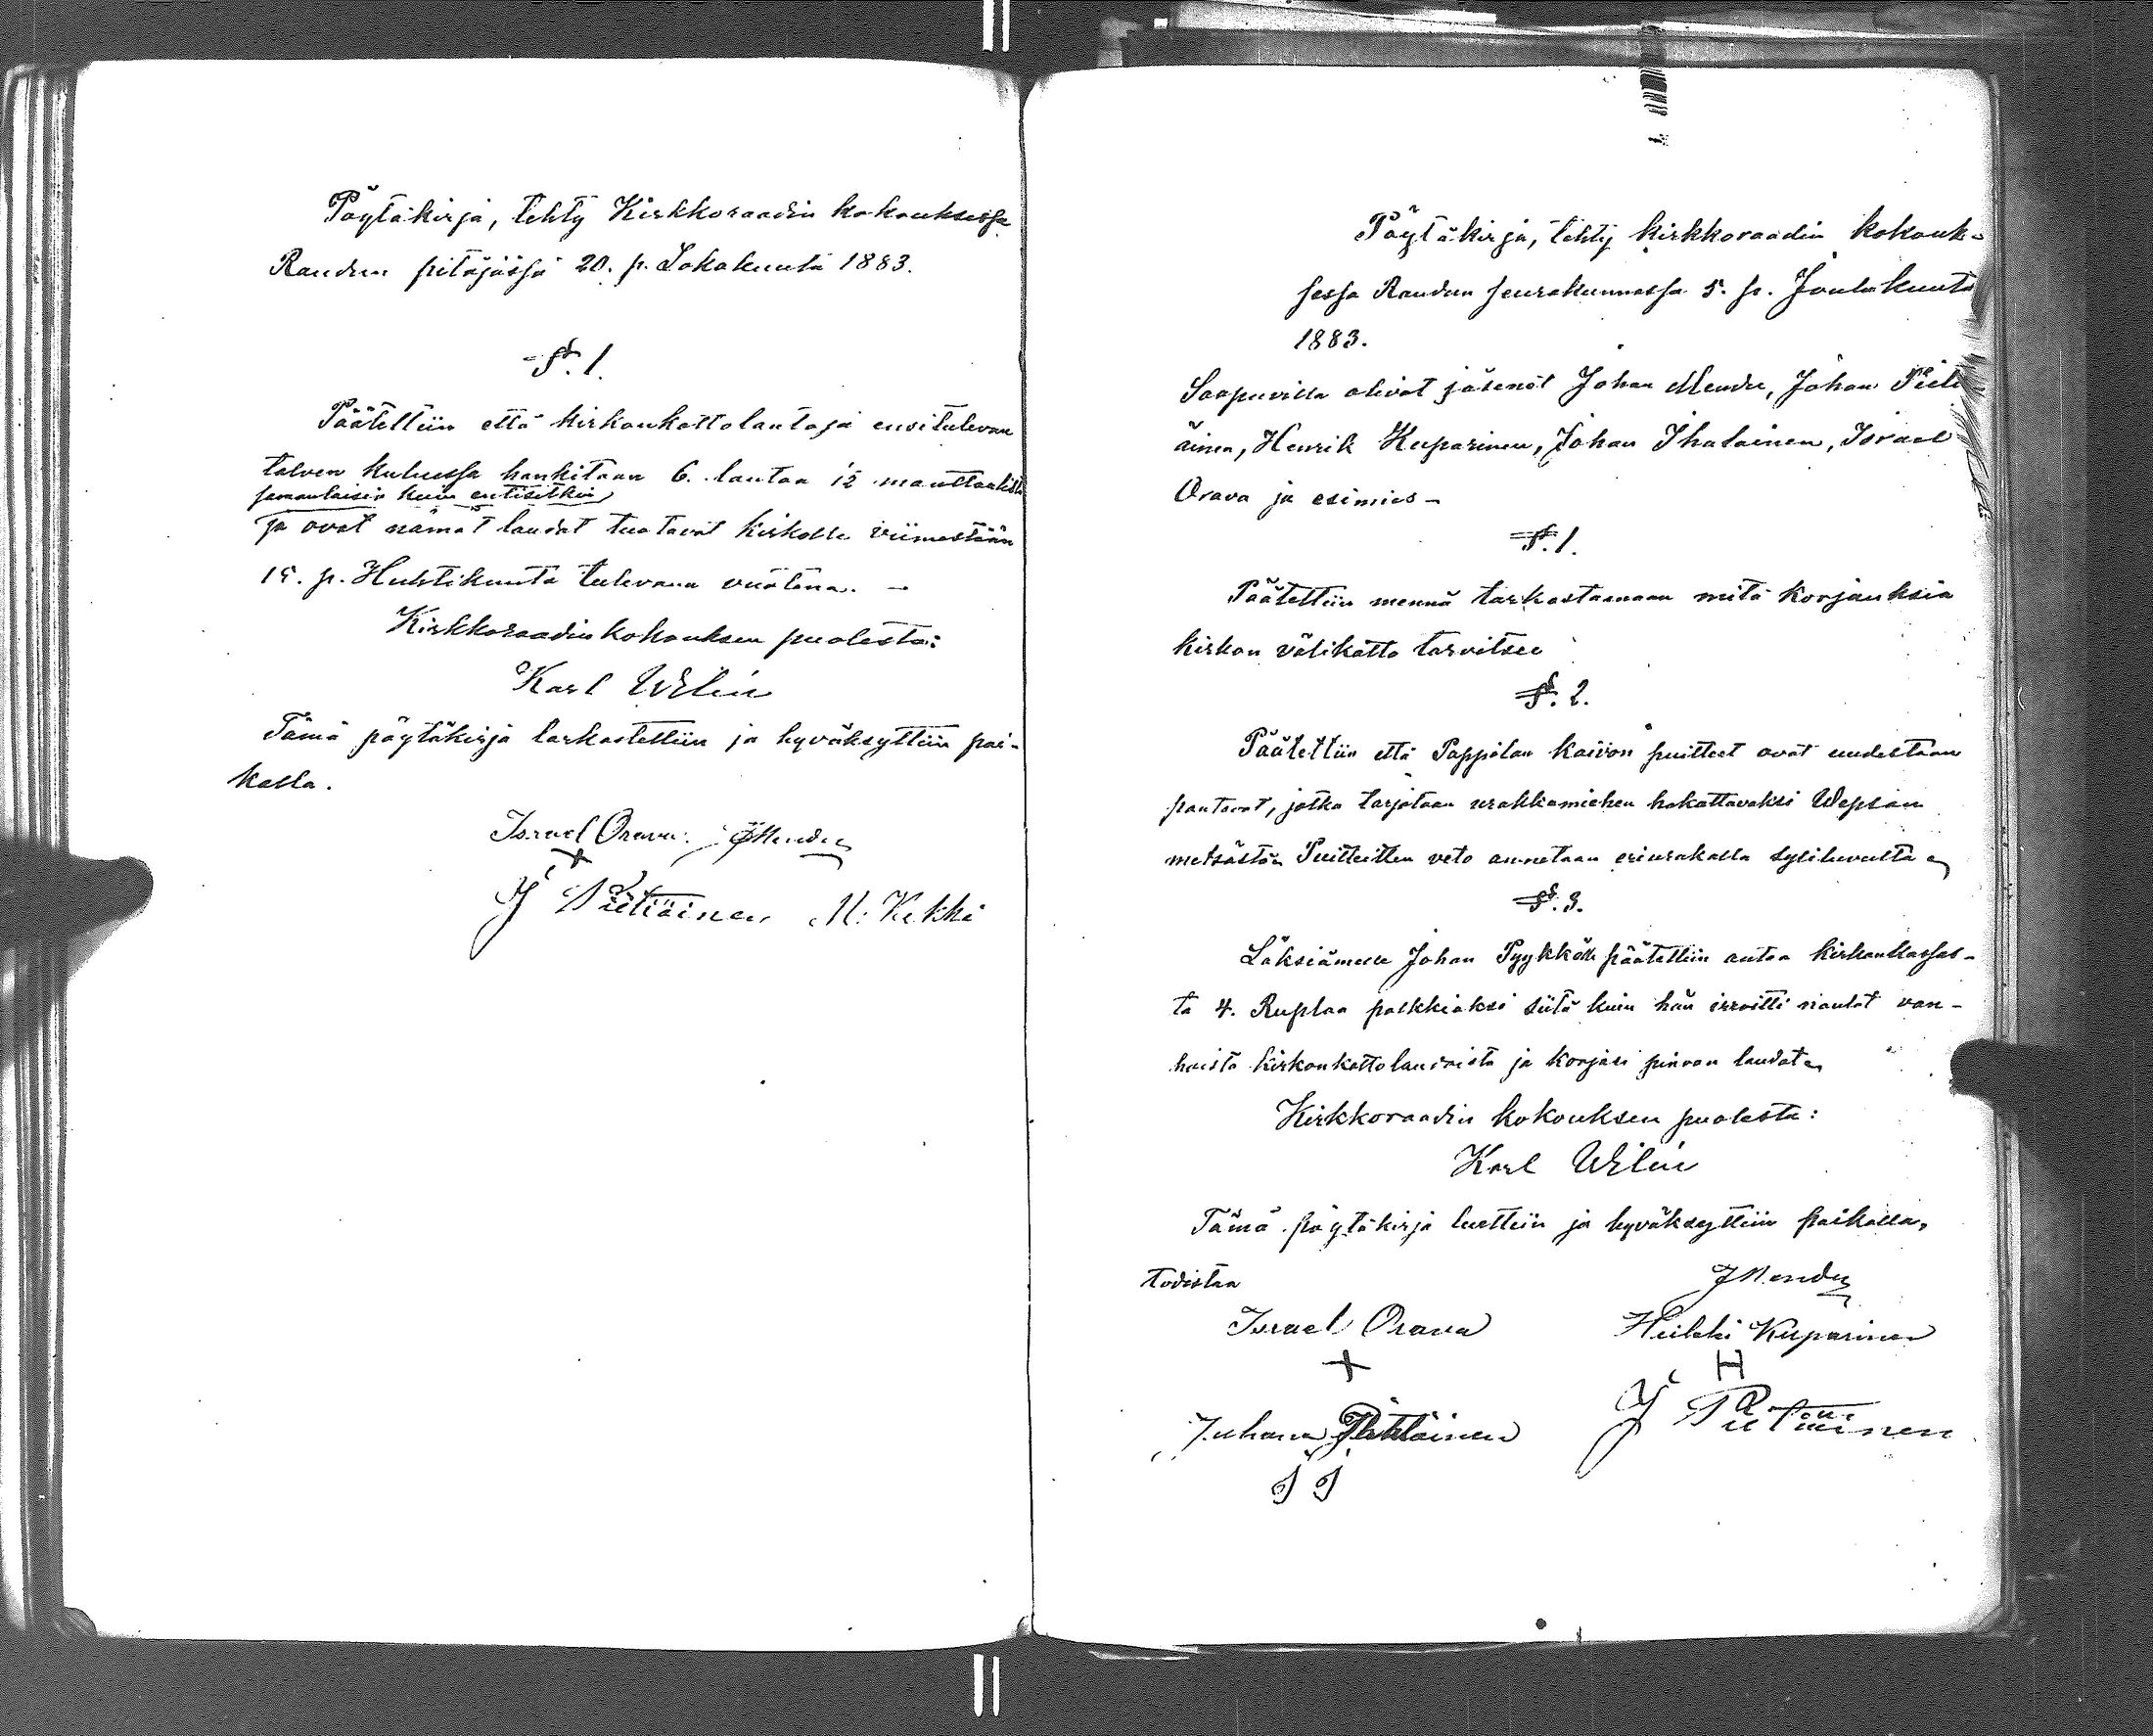 Pöytäkirja, tehty Kirkkoraadin kokouksessa
Raudun pitäjässä 20. p. Lokakuuta 1883.
§. 1.
Päätettiin että kirkonkattolautoja ensitulevan
talven kuluessa hankitaan 6. lautaa 1/2 manttaalista
samanlaisia kuin entisetkin
ja ovat nämät laudat tuotavat kirkolle viimestään
15. p. Huhtikuuta tulevana vuotena. –
Kirkkoraadin kokouksen puolesta:
Karl Welin
Tämä pöytäkirja tarkastettiin ja hyväksyttiin pai-
kalla.
Israel Orava. JMendu
J Pietiäinen M: Kukki
Pöytäkirja, tehty kirkkoraadin kokouk-
sessa Raudun seurakunnassa 5. p. Joulukuuta
1883.
Saapuvilla olivat jäsenet Johan Mendu, Johan Pieti
äinen, Henrik Kuparinen, Johan Ihalainen, Israel
Orava ja esimies –
§. 1.
Päätettiin mennä tarkastamaan mitä korjauksia
kirkon välikatto tarvitsee
§. 2.
Päätettiin että Pappilan kaivon puitteet ovat uudestaan
pantavat, jotka tarjotaan urakkamiehen hakattavaksi Wepsän
metsästä. Puitteitten veto annetaan eriurakalla syliluvulta
§. 3.
Läksiämelle Johan Pyykkölle päätettiin antaa kirkonkassas-
ta 4. Ruplaa palkkioksi siitä kuin hän irroitti naulat van-
hoista kirkonkattolaudoista ja korjasi pinoon laudat
Kirkkoraadin kokouksen puolesta:
Karl Welin
Tämä pöytäkirja luettiin ja hyväksyttiin paikalla,
todistaa JMendu
Israel Orava Heikki Kuparinen
H
Juhana J Pietiäinen
J J